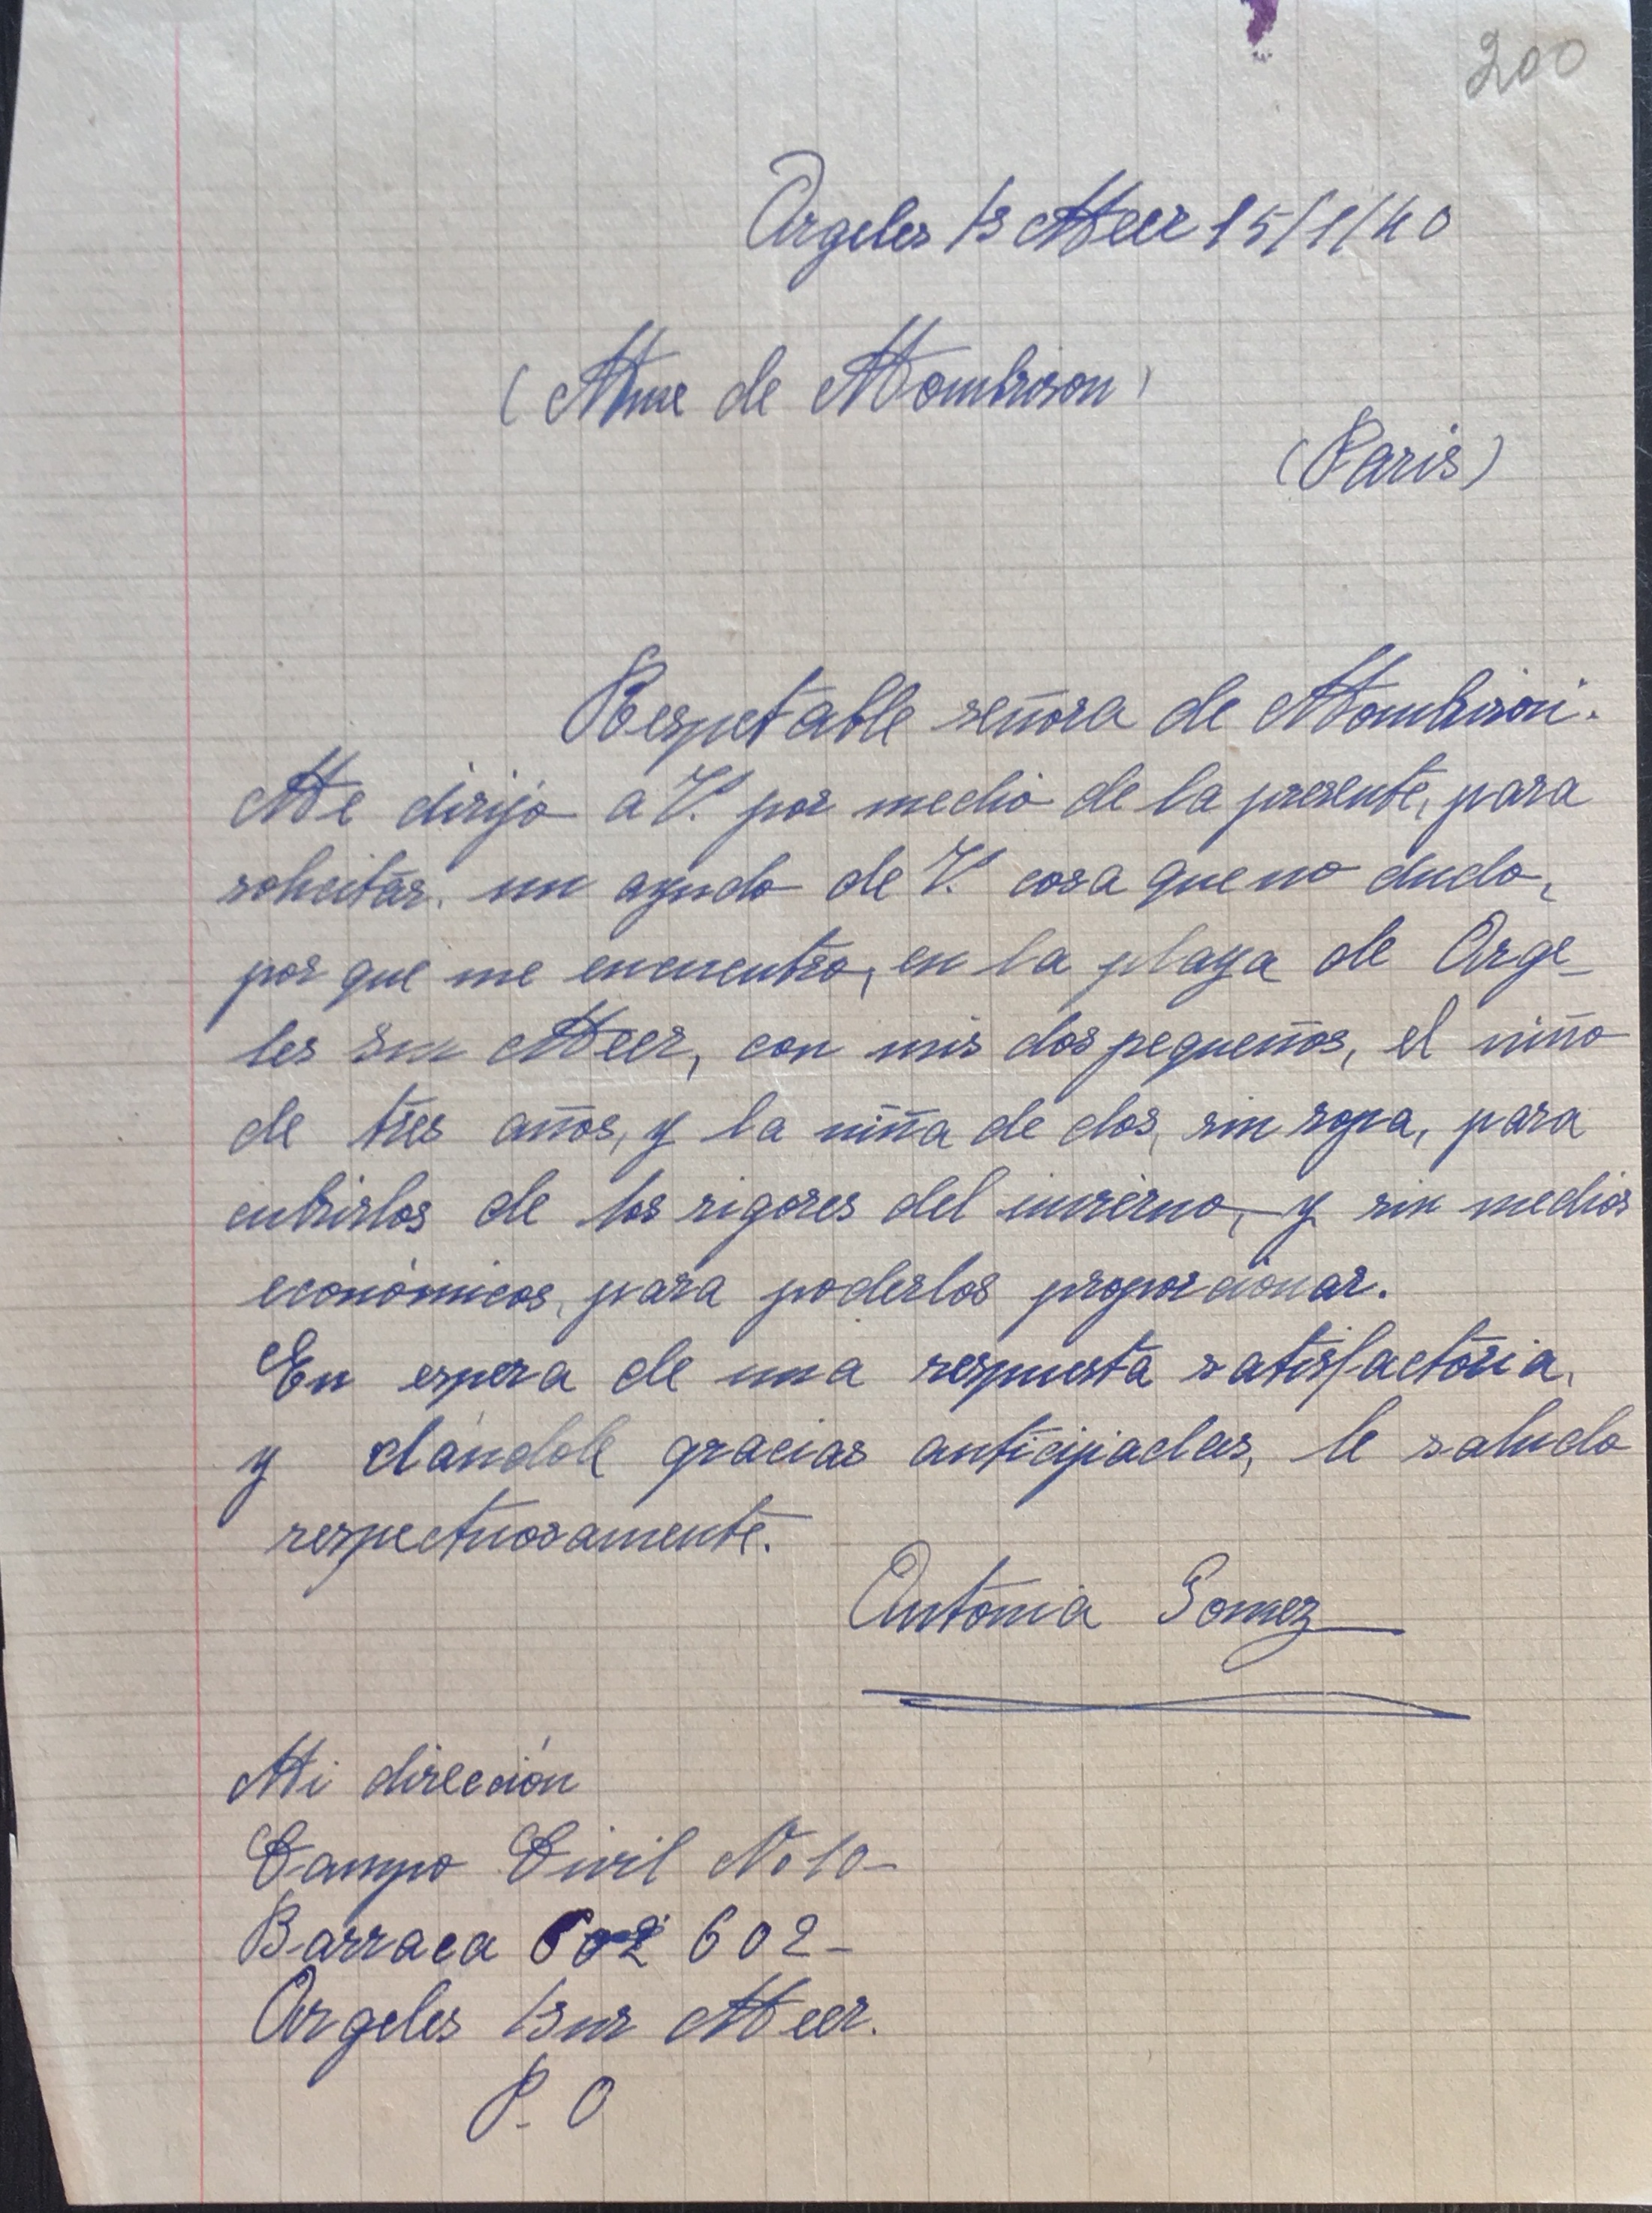 200
Argeles /s Meer 15/1/40
(Mme de Mombrison)
(Paris)
Respetable señora de Mombrison.
Me dirijo a V. por medio de la presente, para
solicitar. un ayudo de V. cosa que no dudo,
por que me encuentro, en la playa de Arge-
les Sur Meer, con mis dos pequeños, el niño
de tres años, y la niña de dos, sin ropa, para
cubrirlos de los rigores del invierno, y sin medios
económicos, para poderlos proporcionar.
En espera de una respuesta satisfactoria,
y dándole gracias anticipadas, le saludo
respectuosamente.
Antonia Gomez
Mi dirección
Campo Civil No 10-
Barraca 602 602-
Argeles /sur Meer.
P. O